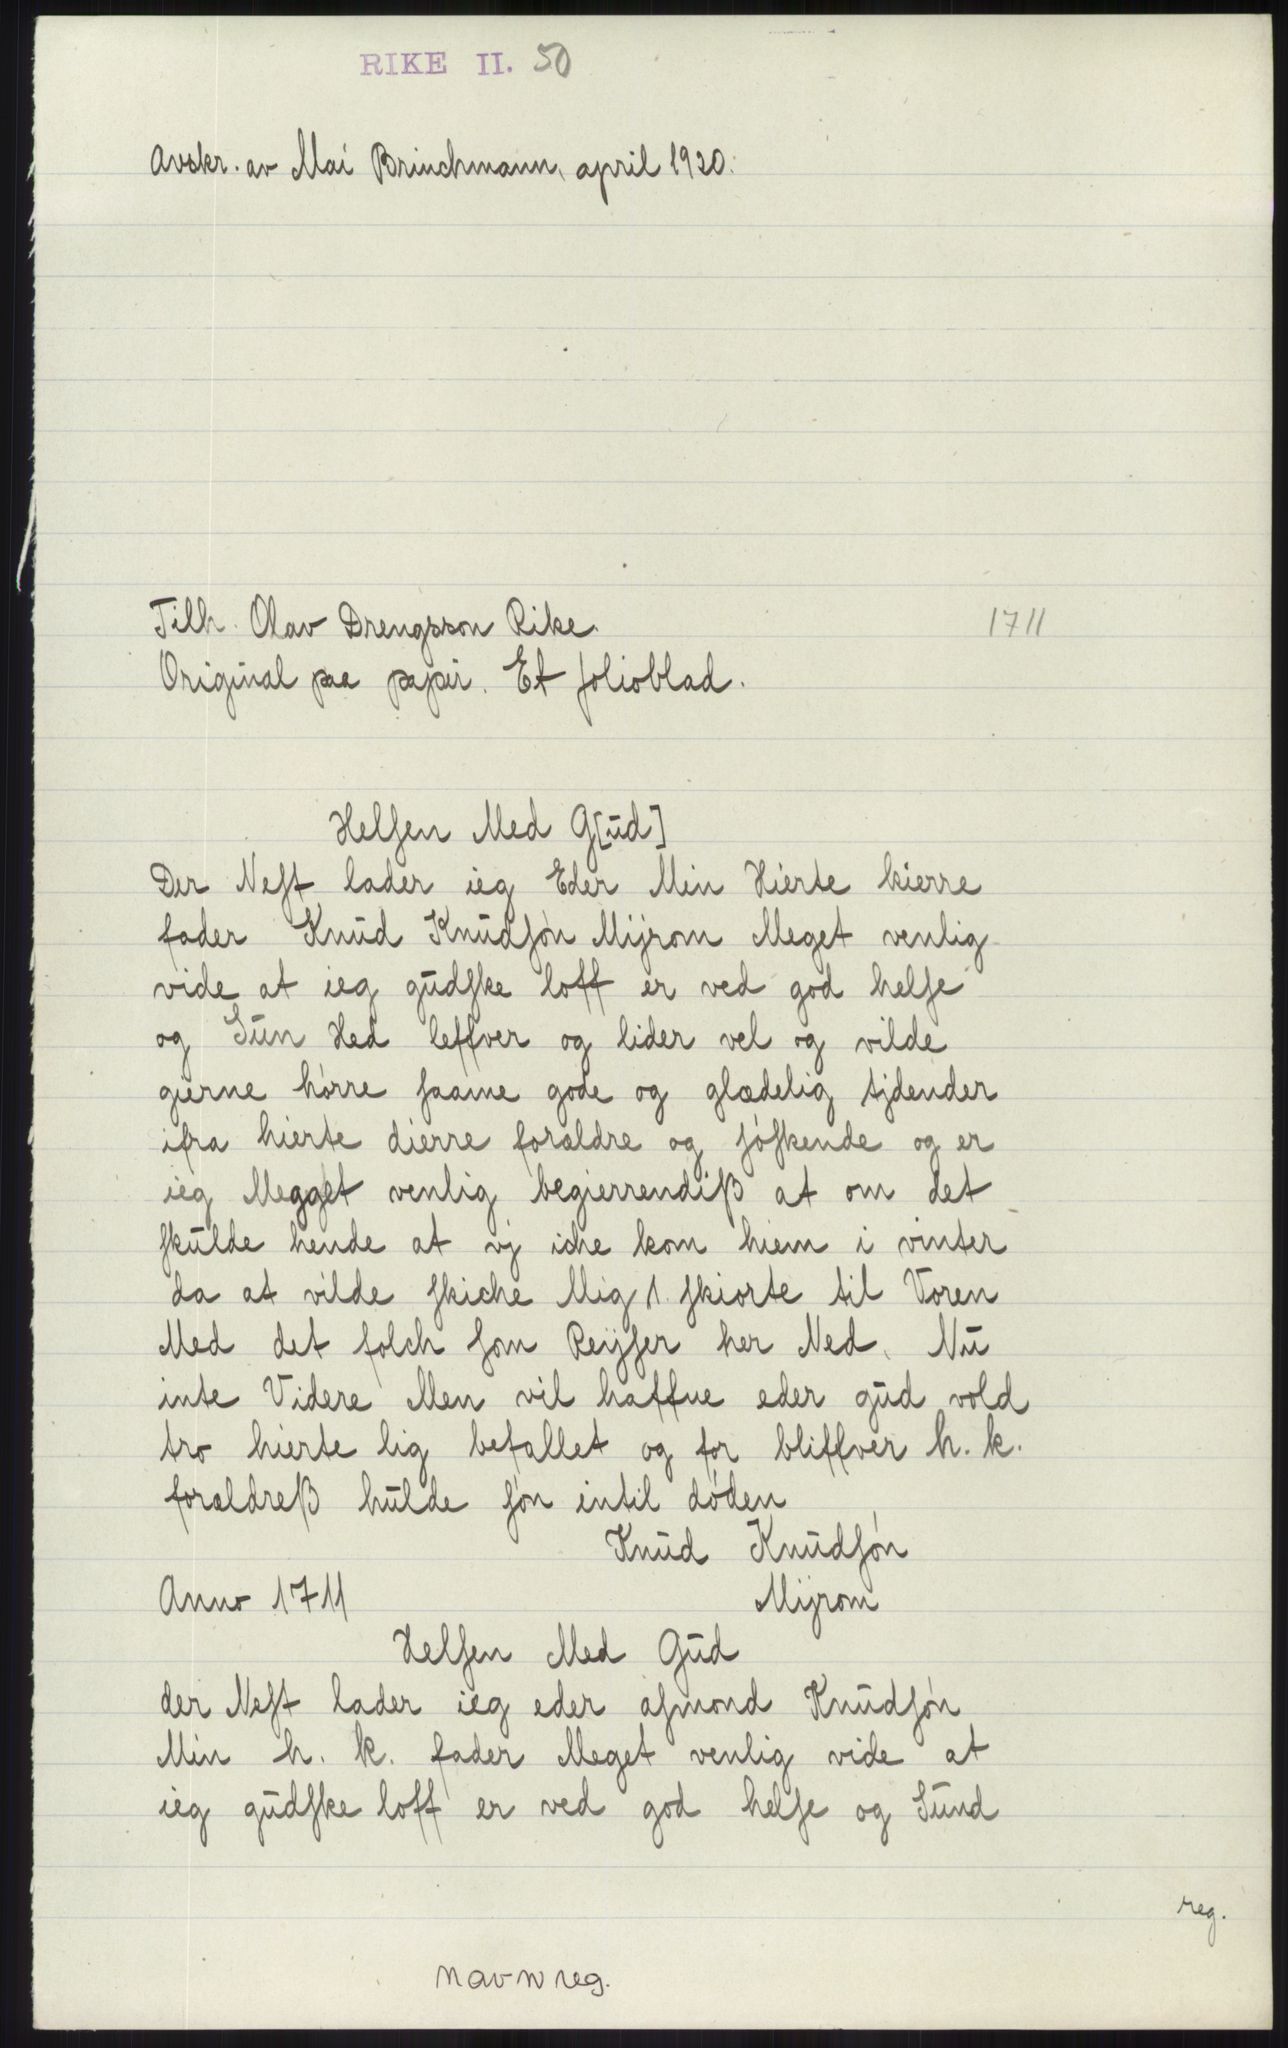 RIKE II. 50
Avskr. av Mai Brinchmann, april 1920.
Tilh. Olav Drengsson Rike. 1711
Original paa papir. Et folioblad.
Helsen Med G[ūd]
Der Nest lader ieg Eder Min Hierte kierre
fader Knūd Knūdsøn Mijrom Meget venlig
vide at ieg gūdske loff er ved god helse
og Sūn Hed leffver og lider vel og vilde
gierne hørre saame gode og glædelig tjdender
ifra hierte dierre forældre og søskende og er
ieg Megget venlig begierrendiß at om det
skūlde hende at vj iche kom hiem i vinter
da at vilde skiche Mig 1 skiorte til Voren
Med det folch som Reijser her Ned. Nū
inte Videre Men vil haffve eder gūd vold
tro hierte lig befallet og for bliffver h. k.
forældreß hūlde søn intil døden
Knūd Knūdsøn
Anno 1711 Mijrom
Helsen Med Gūd
der Nest lader ieg eder asmond Knūdsøn
Min h. k. fader Meget venlig vide at
ieg gūdske loff er ved god helse og Sūnd
reg.
navnreg.